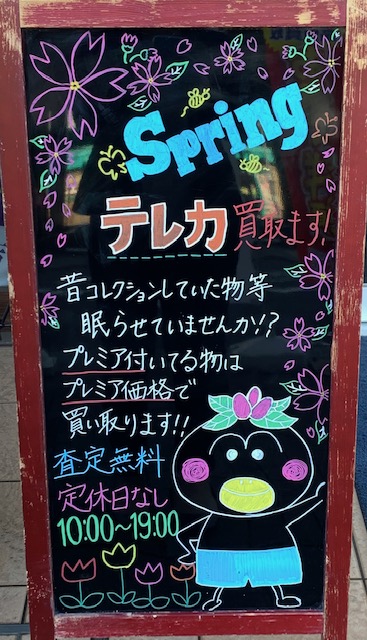 Spring
テレカ買取ます!
昔コレクションしていた物等
眠らせていませんか!?
プレミア付いてる物は
プレミア価格で
買い取ります!!
査定無料
定休日なし
10:00~19:00